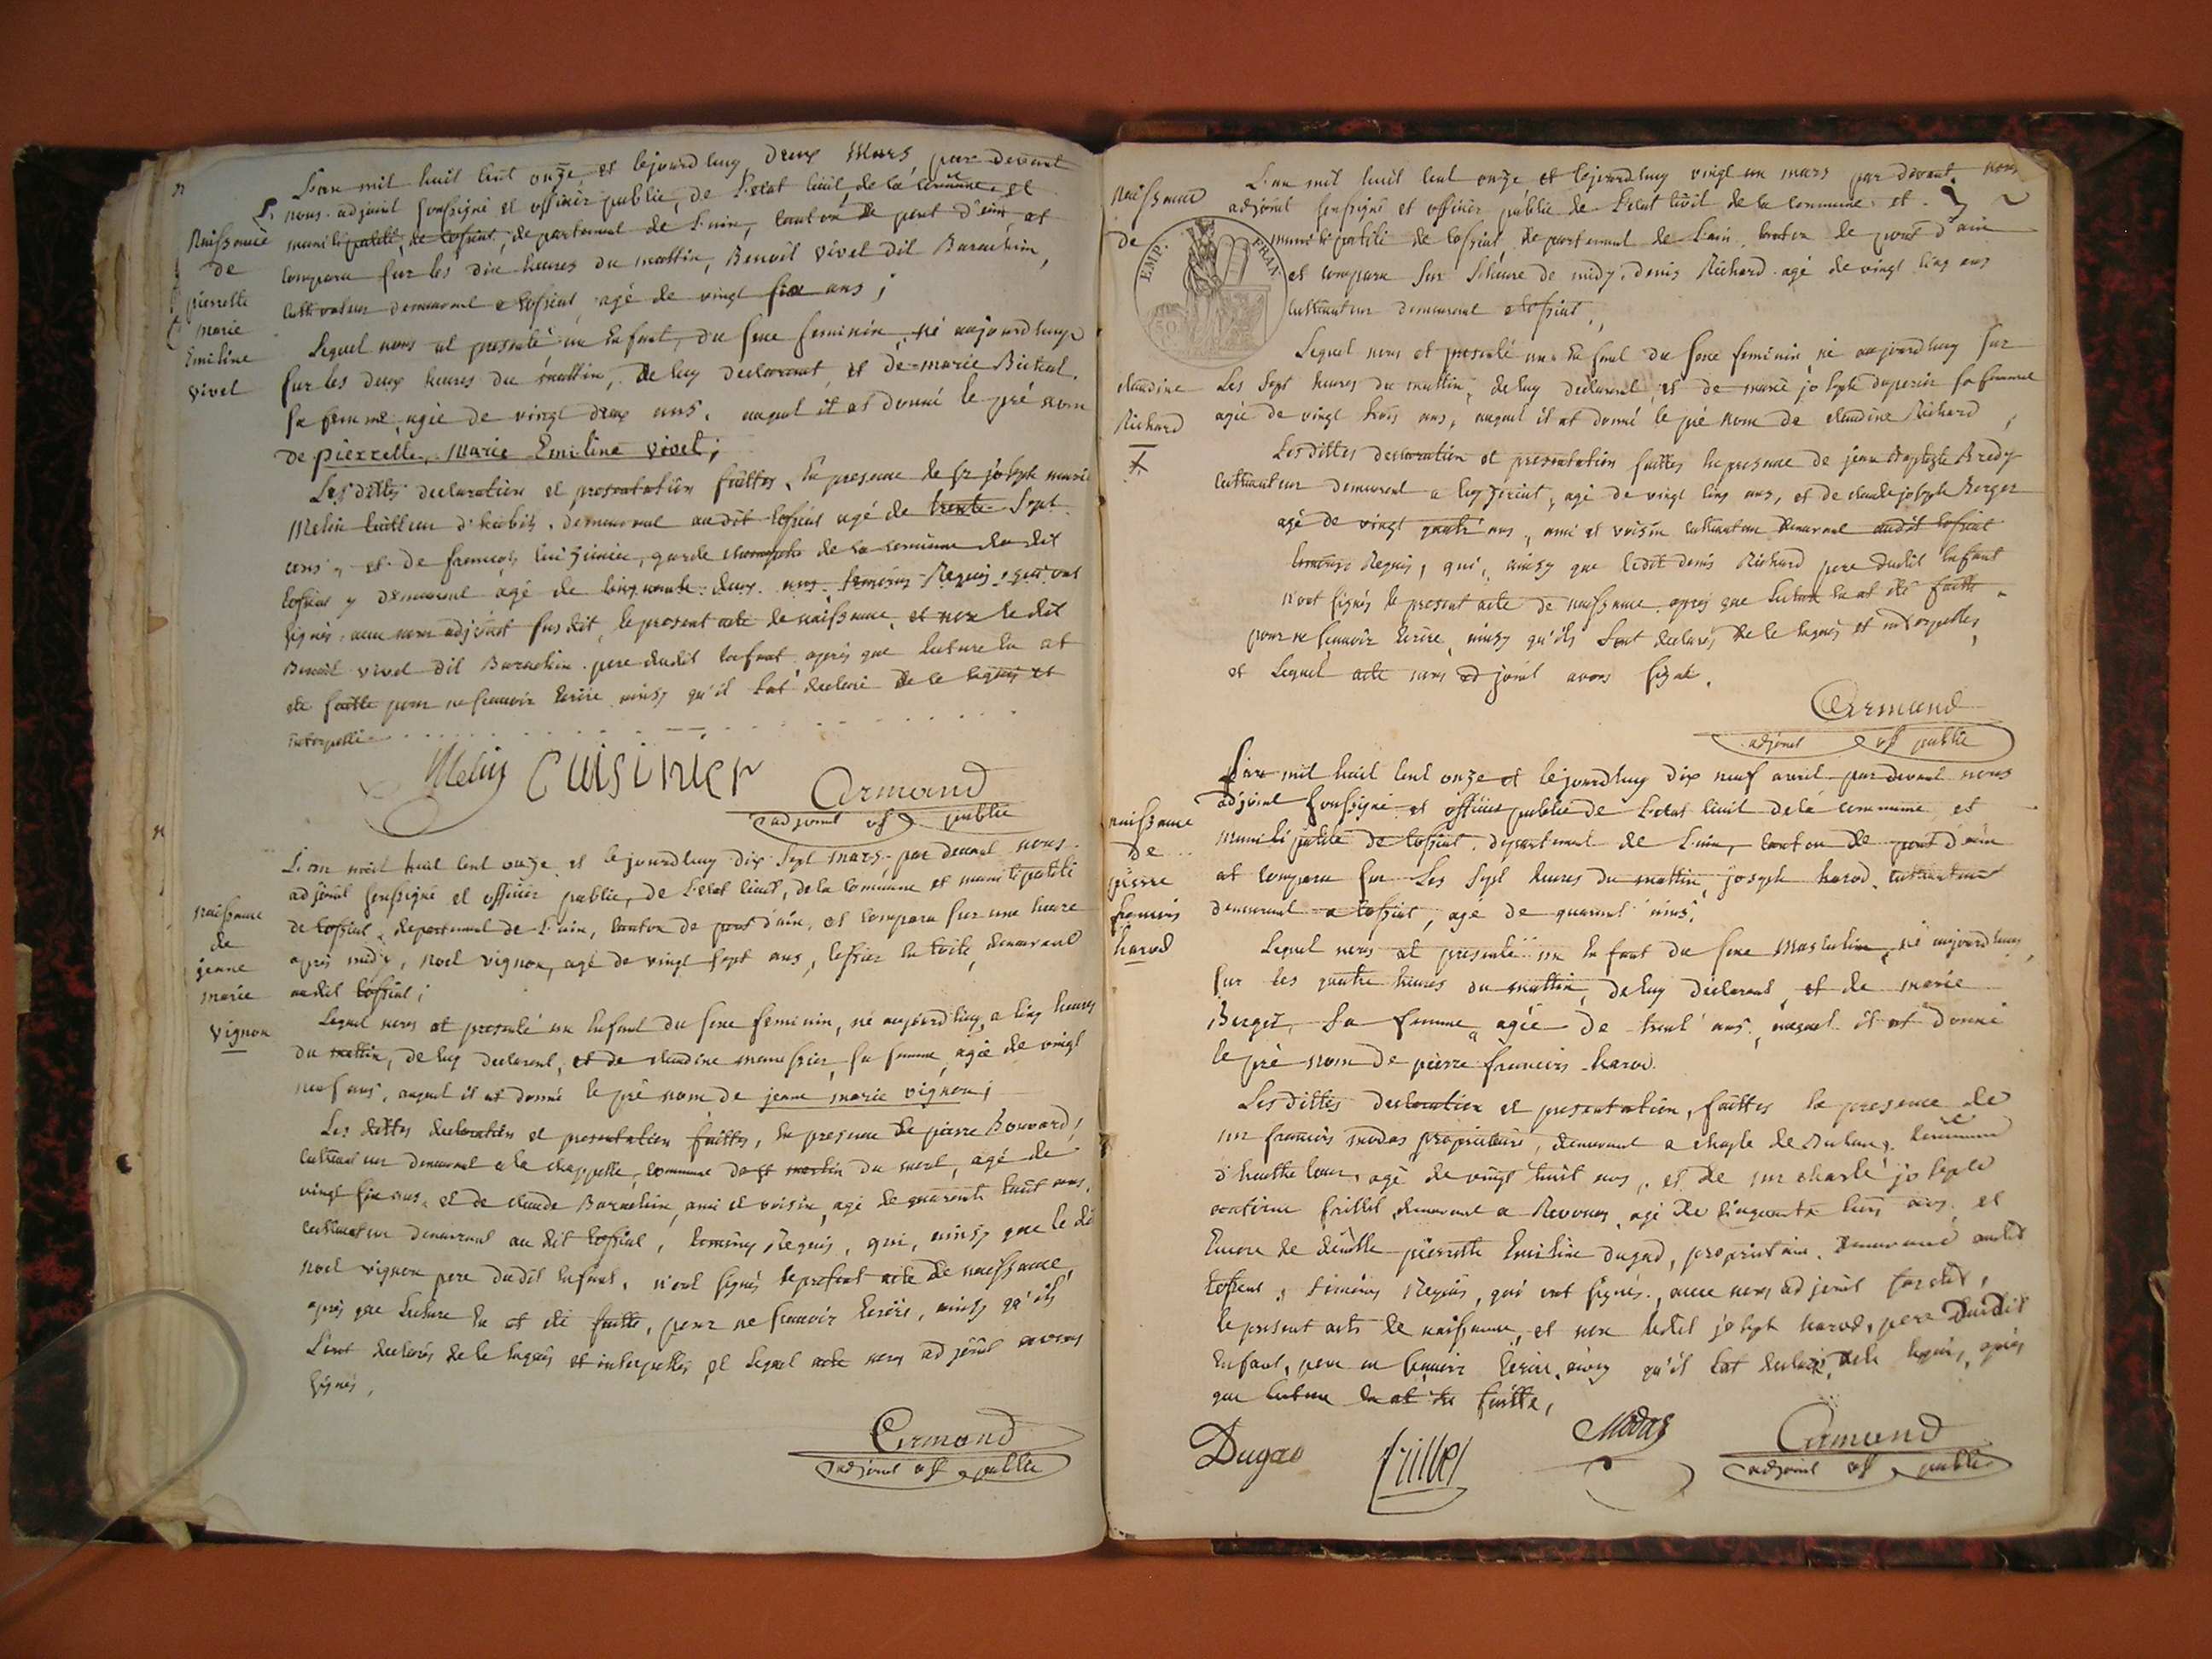 L'an mil huit cent onze et le jourdhuy deux Mars, par devant
nous adjoint soussigné et officier public, de L'etat Civil, de la Commune et
municipalité, de Tossiat, departement de L'ain, canton de pont d'ain, at
comparu sur les dix heures du mattin, Benoit vivet dit Barachin,
cultivateur demeurant a tossiat, agé de vingt six ans;
Naissance
de
pierrette
marie
Emiline
vivet
Lequel nous at presenté un Enfant, du sexe feminin, né aujourdhuy
sur les deux heures du mattin, de luy declarant, et de marie
sa femme, agée de vingt deux ans, auquel il at donné le pré nom
de pierrette, Marie Emiline vivet;
Les dittes declaration et presentation faittes, En presence de sr joseph marie
Melin tailleur d'habits, demeurant au dit tossiat agé de trente sept
ans, et de françois Cuizinier, garde champetre de la Commune du dit
tossiat y demeurant agé de cinquante deux ans, temoins Requis, qui ont
signés avec nous adjoint susdit, le present acte de naissance, et non le dit
Benoit vivet dit Barachin pere dudit Enfant après que lecture En at
été faitte pour ne scavoir Ecrire ainsy qu'il s'at declaré de ce Requis et
interpellé
Melin Cuisinier Armand
adjoint of public
L'an mil huit cent onze et le jourdhuy dix sept mars par devant nous
adjoint soussigné et officier public, de L'etat Civil, de la Commune et municipalité
de tossiat, departement de L'ain, canton de pont d'ain, at comparu sur une heure
après midy, noel vignon, agé de vingt sept ans, tissier En toile, demeurant
audit tossiat;
naissance
de
jeanne
marie
vignon
Lequel nous at presenté un Enfant du sexe feminin, né aujourd'huy, a cinq heures
du mattin, de luy declarant, et de claudine sa femme, agée de vingt
neuf ans, auquel il at donné le pré nom de jeanne marie vignon;
Les dittes declaration et presentation faittes, En presence de pierre Bouvard,
cultivateur demeurant a la chappelle, commune de st martin du mont, agé de
vingt six ans, et de claude Barachin, ami et voisin, agé de quarente huit ans,
cultivateur demeurant au dit tossiat, temoins Requis, qui, ainsy que le dit
noel vignon pere dudit Enfant, n'ont signés le present acte de naissance,
après que Lecture En at été faitte, pour ne scavoir Ecrire, ainsy qu'ils
L'ont declarés de le Requis et interpellés, et Lequel acte nous adjoint avons
signés,
Armand
adjoint of public
L'an mil huit cent onze et le jourdhuy vingt un mars par devant nous
adjoint soussigné et officier public de L'etat Civil de la Commune et
municipalité de tossiat departement de L'ain, canton de pont d'ain
at comparu sur L'heure de midy, denis Richard agé de vingt cinq ans
cultivateur demeurant a tossiat,
Naissance
de
EMP. FRAN.
50
claudine
Richard
Lequel nous at presenté un Enfant du sexe feminin né aujourdhuy sur
Les sept heures du mattin, de luy declarant et de marie joseph duperier sa femme
agée de vingt trois ans, auquel il at donné le pré nom de claudine Richard,
Les dittes declaration et presentation faittes En presence de jean Baptiste Bredy
cultivateur demeurant a, agé de vingt cinq ans, et de claude joseph Berger
agé de vingt quatre ans, ami et voisin cultivateur demeurant audit tossiat
temoins Requis, qui, ainsy que ledit denis Richard pere dudit Enfant
n'ont signés le present acte de naissance après que Lecture En at été faitte
pour ne scavoir Ecrire, ainsy qu'ils L'ont declarés de le Requis et interpellés,
et Lequel acte nous adjoint avons signé.
Armand
adjoint of public
L'an mil huit cent onze et le jourdhuy dix neuf avril par devant nous
adjoint soussigné et officier public de L'etat Civil de la commune et
municipalité de tossiat, departement de L'ain, canton de pont d'ain
at comparu sur Les sept heures du mattin, joseph harod, cultivateur
demeurant a tossiat, agé de quarent ans,
naissance
de
pierre
francois
harod
Lequel nous at presenté un Enfant du sexe Masculin, né aujourdhuy,
sur les quatre heures du mattin, de luy declarant, et de marie
Berger, sa femme, agée de trent ans, auquel il at donné
le pré nom de pierre francois harod.
Les dittes declaration et presentation, faittes En presence de
mr francois modas propriétaire, demeurant a, commune
d'hautecour, agé de vingt huit ans, et de mr charle joseph
frillet, demeurant a Revonas, agé de cinquante trois ans, et
Encore de demoiselle pierrette Emiline dugad, proprietaire, demeurant audit
tossiat, temoins Requis, qui ont signés, avec nous adjoint susdit,
le present acte de naissance, et non ledit joseph harod, pere dudit
Enfant, pour ne scavoir Ecrire, ainsy qu'il L'at declaré, de le Requis, après
que Lecture En at été faitte,
Dugad frillet Modas Armand
adjoint of public